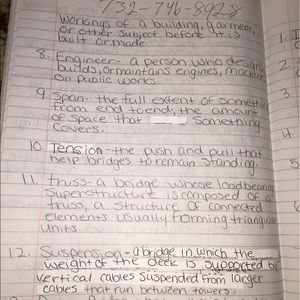 732-746-8928
workings of a building, garment,
or other subject before it is
built or made
8. Engineer- a person who designs,
builds, or maintains engines, machine
or public works.
9. Span- the full extent of somethin
from end to end, the amount
of space that something
covers.
10. Tension- the push and pull that
help bridges to remain standing.
11. Truss- a bridge whose loadbearing
superstructure is composed of a
truss, a structure of connected
elements usually forming triangular
units.
12. Suspension- a bridge in which the
weight of the deck is supported by
vertical cables suspended from larger
cables that run between towers
1.
2.
3.
4.
5.